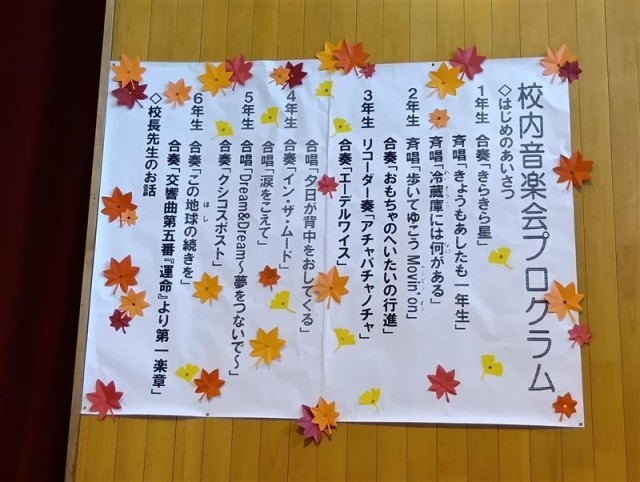 校内音楽会プログラム
◇はじめのあいさつ
1年生 合奏「きらきら星」
斉唱「きょうもあしたも一年生」
2年生 斉唱「冷蔵庫には何がある」
斉唱「歩いてゆこう Movin' on」
合奏「おもちゃのへいたいの行進」
3年生 リコーダー奏「アチャパチャノチャ」
合奏「エーデルワイス」
合唱「夕日が背中をおしてくる」
4年生 合奏「イン・ザ・ムード」
合唱「涙をこえて」
5年生 合唱「Dream&Dream～夢をつないで～」
合奏「クシコスポスト」
6年生 合奏「この地球の続きを」
ほし
合奏「交響曲第五番『運命』より第一楽章」
◇校長先生のお話